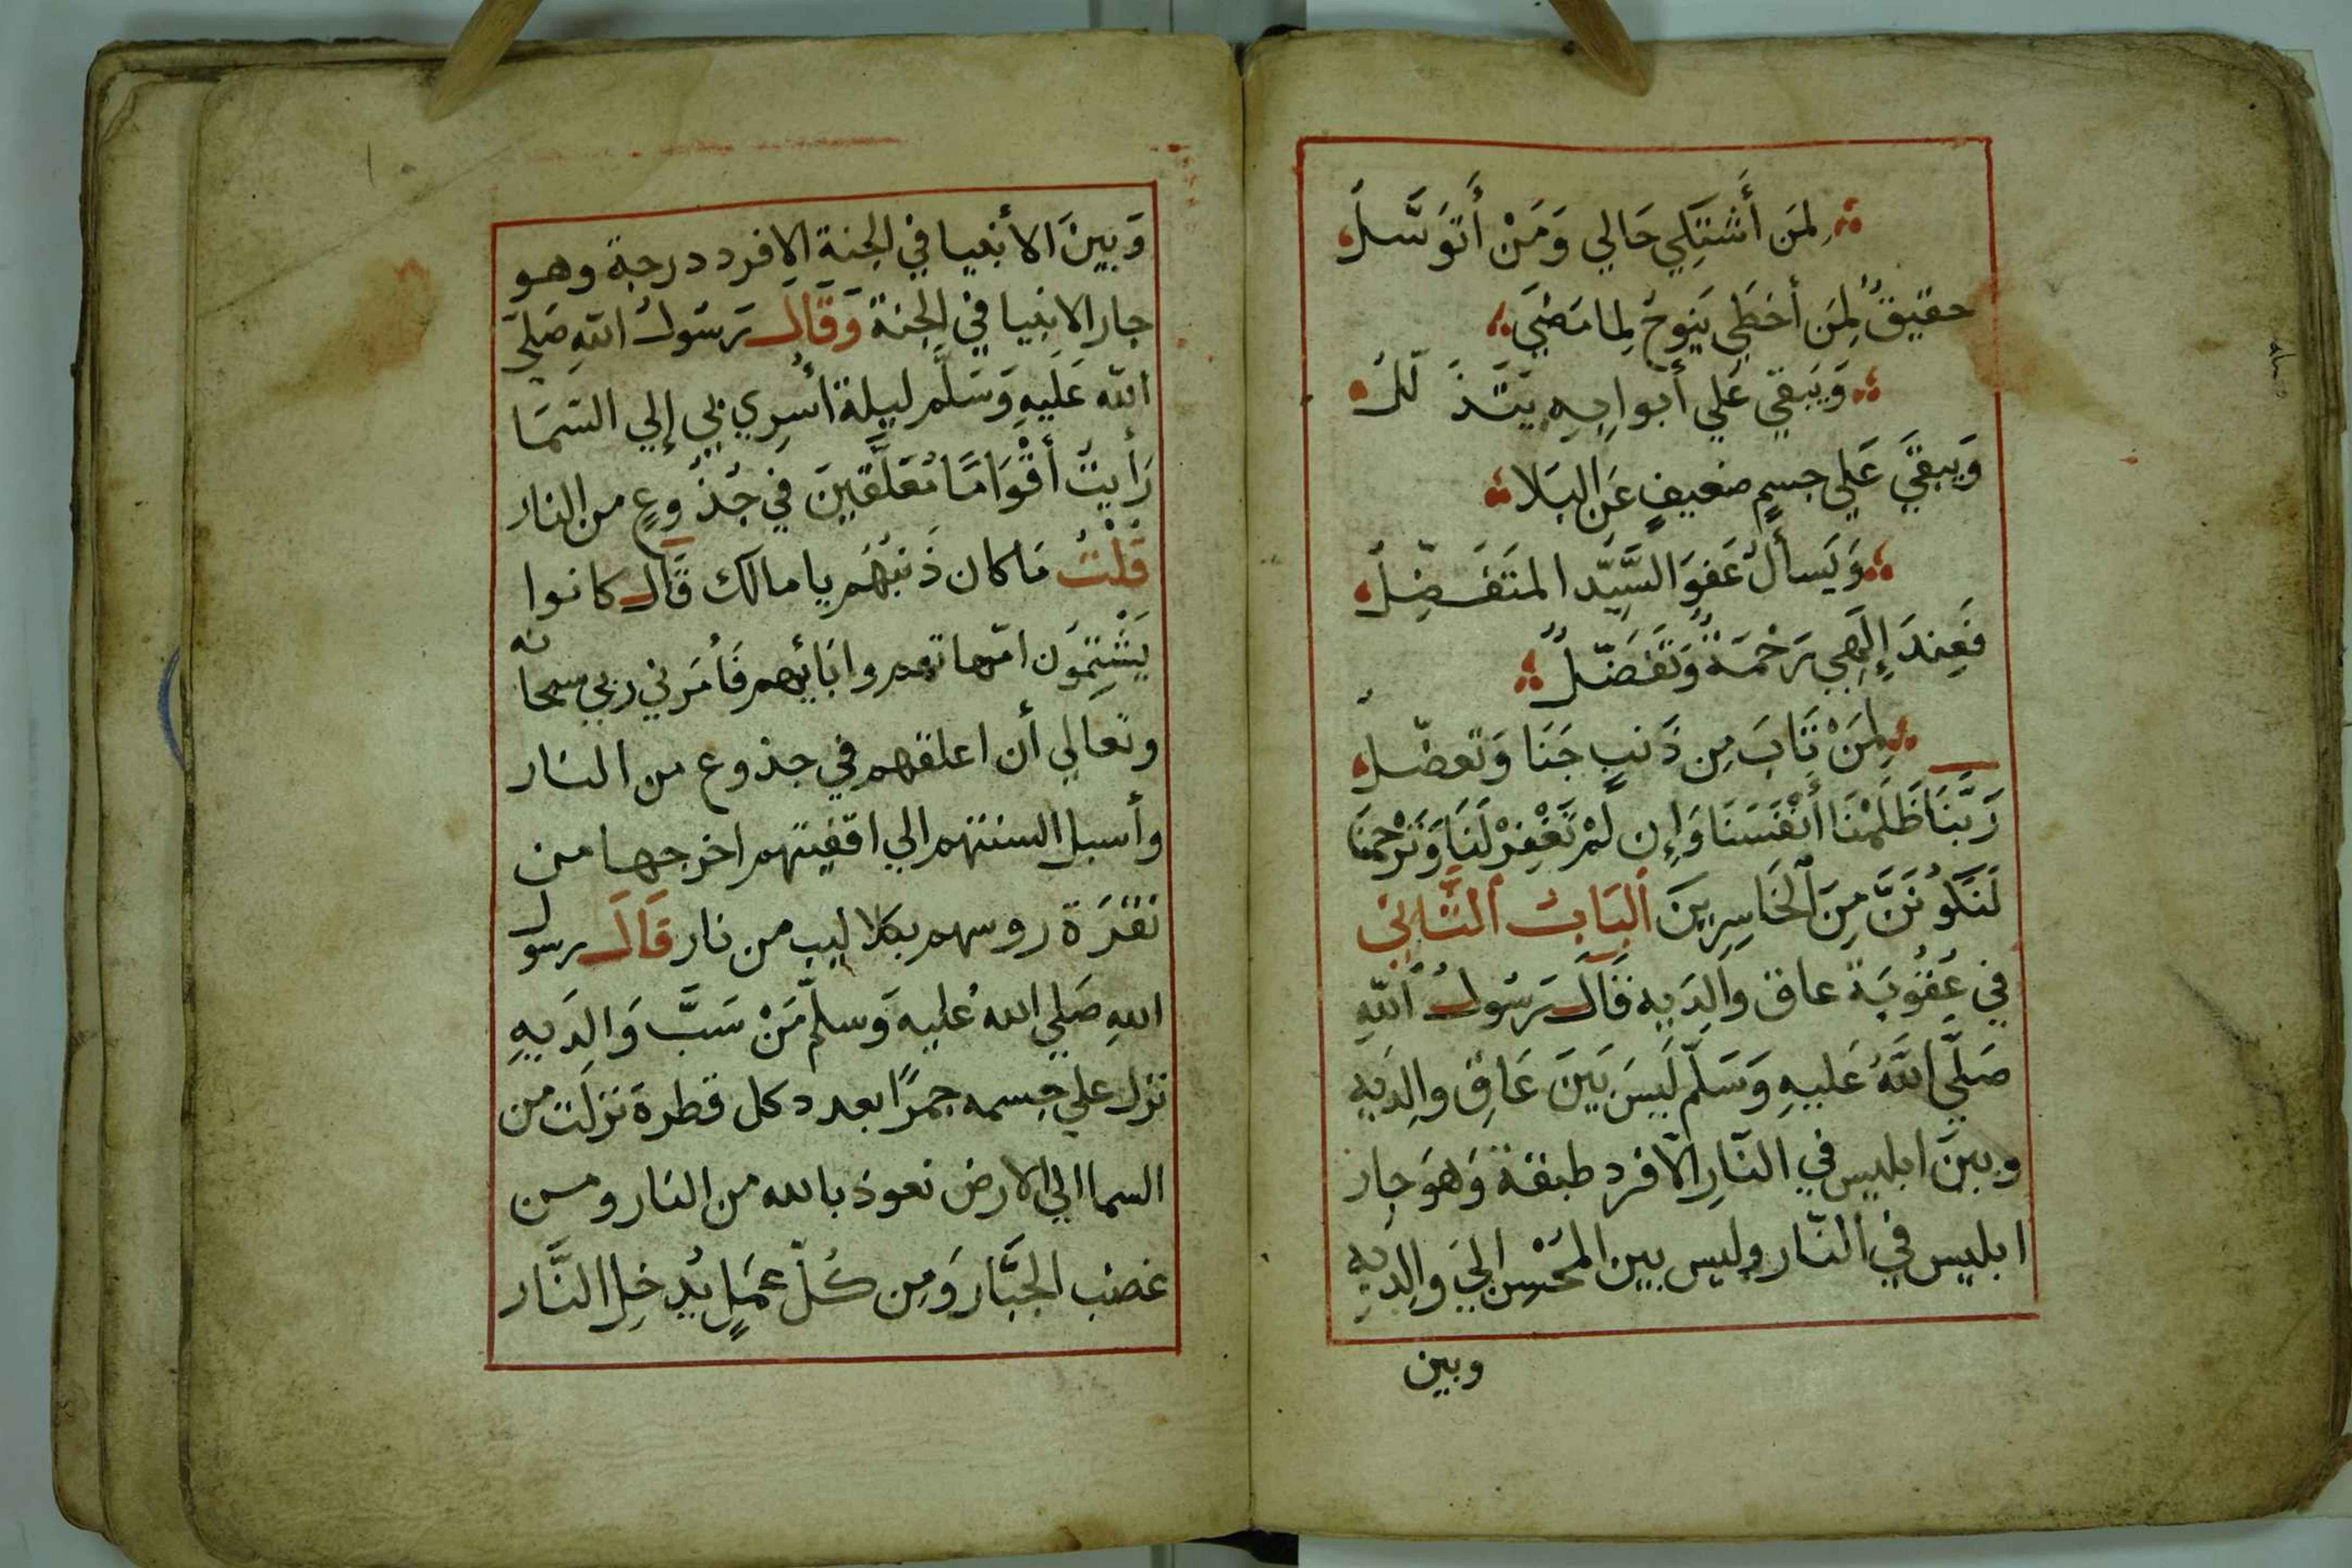 لِمَن أَشتَكِي حَالي وَمَنْ أَتَوَسَّلُ
حقيقٌ لِمَن أخطَي يَنوحُ لِمامَضَي
وَيَبقي عَلي أَبوابِهِ يَتَذَلَّلُ
وَيَبقَي عَلي جسمٍ ضعيفٍ عَنِ البَلا
وَيَسأَلُ عَفوَ السَّيِّد المتَفَضِّلُ
فَعِندَ إِلَهِي رَحْمَةٌ وَتَفَضّلٌ
لِمَنْ تَابَ مِن ذَنبٍ جَنَا وَتَعضّلُ
رَبَّنَا ظَلَمْنَا أَنْفسَنَا وَإِن لَمْ تَغْفِرْ لَنَا وَتَرْحَمنَا
لَنَكُونَنَّ مِنَ الْخَاسِرِينَ اَلبَابُ الثَّانِي
في عُقُوبَة عاق والِدَيه قَالَ رَسُولُ اللهِ
صَلَّي اللهُ عَليهِ وَسَلَّم لَيسَ بَينَ عَاقِ والِدَيهِ
وبينَ ابليس في النّارِ الّا فرد طبقة وَهوَ جار
ابليس في النّار وليس بين المحْسِن إِلي والِدَيهِ
وبين
وَبينَ الأنبيا في الجنة الا فرد درجة وهو
جار الانبيا في الجنة وَقَالَ رَسُولُ اللهِ صَلي
الله عَلَيهِ وَسَلَّم ليلة أسرِي بي إلي السَمَا
رَأيتُ أقْوَامًا مُعَلَّقينَ في جُذُوعٍ من النار
قُلْتُ مَا كان ذَنبُهُم يا مالك قَال كانوا
يَشْتِمُونَ امّهاتهم وابَائِهم فَأمَرني ربي سبحانه
وتعالي أن اعلقهم في جذوع من النار
وأسبل السنتهم الي اقفيتهم اخرجها من
نقرَة روسهم بكلاليب من نار قَالَ رسول
اللهِ صَلي اللهُ عَليه وَسلم مَنْ سَبَّ وَالِدَيهِ
نزل علي جسمه جمرًا بعدد كل قطرة نزلت من
السما الي الارض نعوذ بالله من النار ومن
غضب الجَبَّار وَمِن كُلّ عمَلٍ يُدخِل النَّار